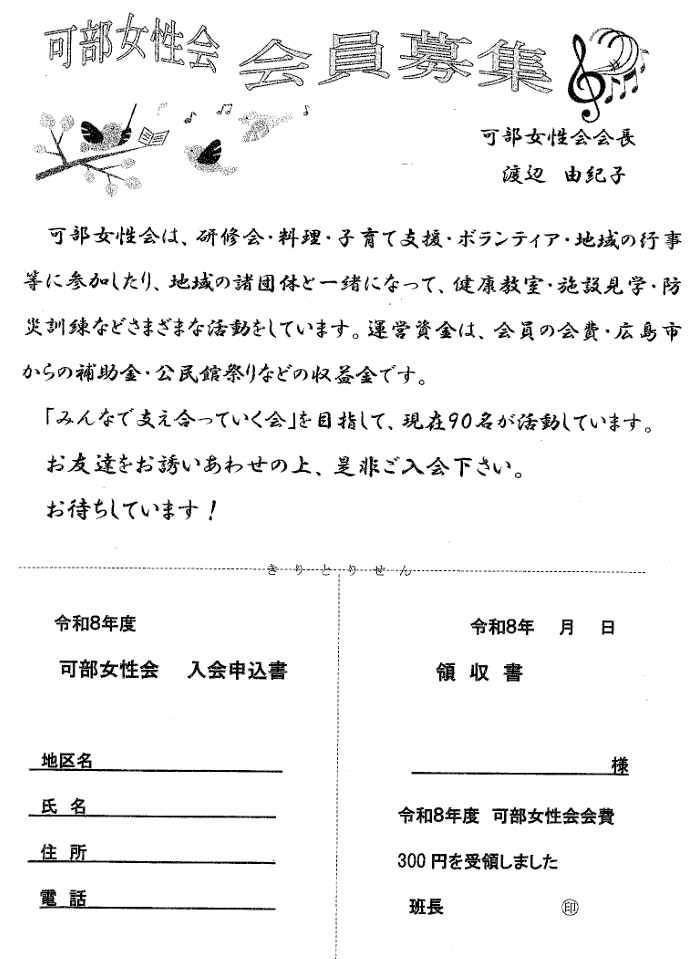 可部女性会 会員募集
可部女性会会長
渡辺 由紀子
可部女性会は、研修会・料理・子育て支援・ボランティア・地域の行事
等に参加したり、地域の諸団体と一緒になって、健康教室・施設見学・防
災訓練などさまざまな活動をしています。運営資金は、会員の会費・広島市
からの補助金・公民館祭りなどの収益金です。
「みんなで支え合っていく会」を目指して、現在90名が活動しています。
お友達をお誘いあわせの上、是非ご入会下さい。
お待ちしています！
きりとりせん
令和8年度
可部女性会 入会申込書
地区名
氏 名
住 所
電 話
令和8年 月 日
領 収 書
様
令和8年度 可部女性会会費
300円を受領しました
班長 ㊞